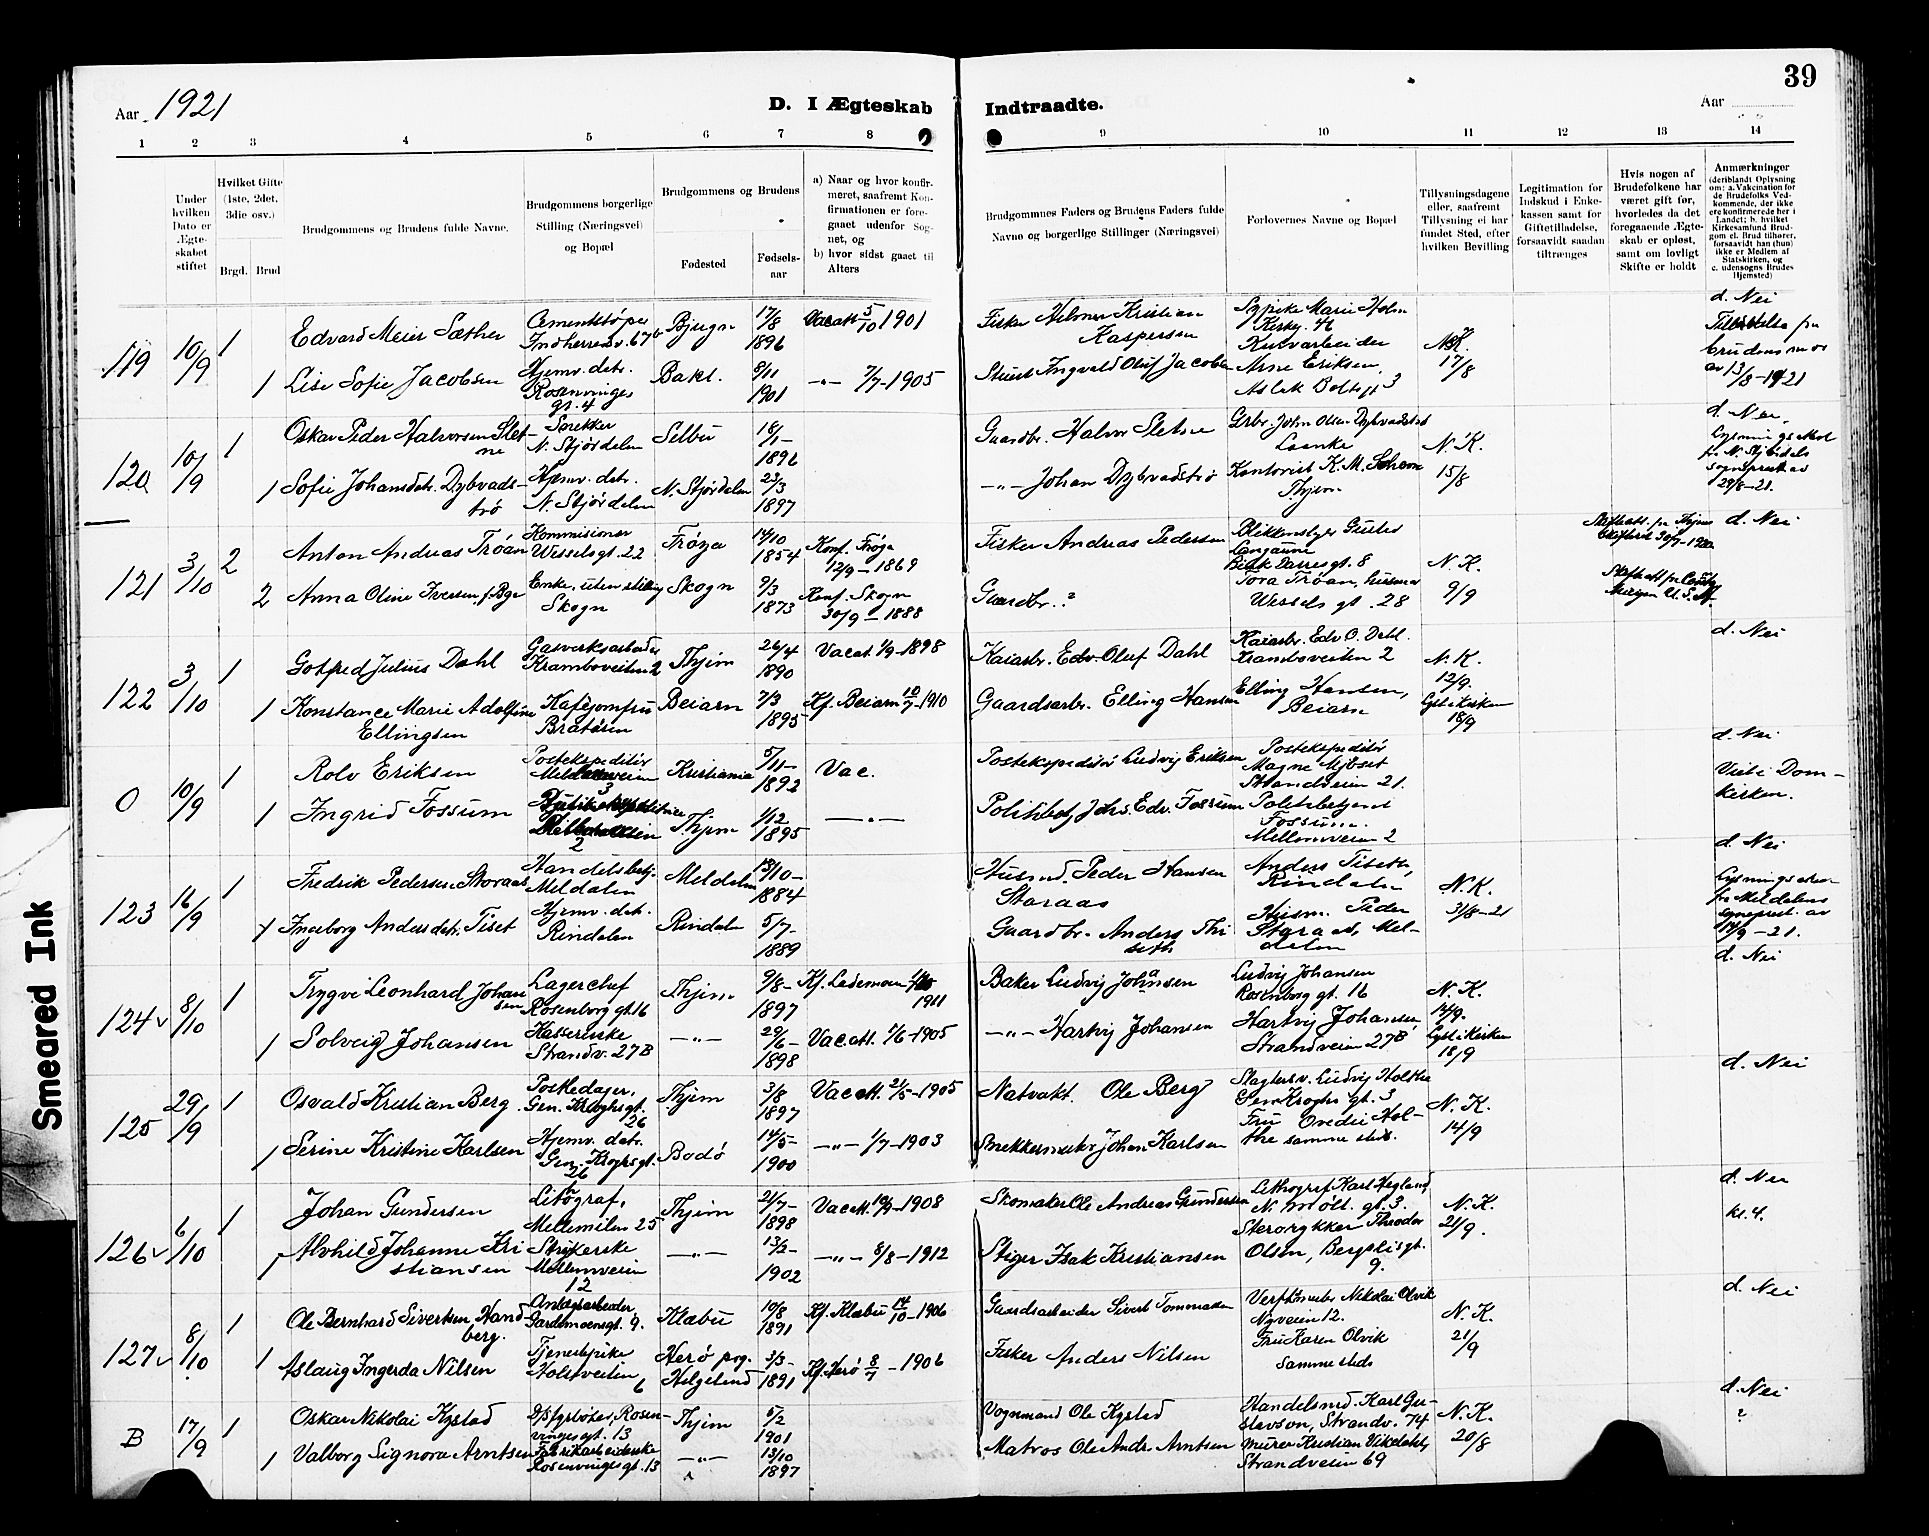 39
Aar 1921
D. I Ægteskab Indtraadte.
Aar
1 2 3 4 5 6 7 8 9 10 11 12 13 14
Under hvilken Dato er Ægteskabet stiftet
Hvilket Gifte (1ste, 2det, 3die osv.)
Brgd. Brud
Brudgommens og Brudens fulde Navne.
Brudgommens borgerlige Stilling (Næringsvei) og Bopæl
Brudgommens og Brudens
Fødested
Fødsels-aar
a) Naar og hvor konfirmeret, saafremt Konfirmationen er foregaaet udenfor Sognet, og
b) hvor sidst gaaet til Alters
Brudgommnes Faders og Brudens Faders fulde Navne og borgerlige Stillinger (Næringsvei)
Forlovernes Navne og Bopæl
Tillysningsdagene eller, saafremt Tillysning ei har fundet Sted, efter hvilken Bevilling
Legitimation for Indskud i Enkekassen samt for Giftetilladelse, forsaavidt saadan tiltrænges
Hvis nogen af Brudefolkene har været gift før, hvorledes da det foregaaende Ægteskab er opløst, samt om lovligt Skifte er holdt
Anmærkninger (deriblandt Oplysning om: a. Vakcination for de Brudefolks Vedkommende, der ikke ere konfirmerede her i Landet; b. hvilket Kirkesamfund Brudgom el. Brud tilhører, forsaavidt han (hun) ikke er Medlem af Statskirken, og c. udensogns Brudes Hjemsted)
119 10/9 1 Edvard Meier Sæther Cementstøper Indherredsv. 67b Bjugn 17/8 1896 Vacatt 5/10 1901 Fisker Helmer Kristian Kaspersen Sypike Marie Holm Kirkeg. 46 N.K. 17/8 d. Nei
1 Lise Sofie Jacobsen Hjemv. dtr. Rosenvinges gt. 4 Bakl. 9/11 1901 -"- 7/7-1905 Stuert Ingvald Oluf Jacobsen Kulvarbeider Arne Eriksen, Aslak Boltsgt 3 Tilladelse fra brudens mor av 13/8-1921
120 10/9 1 Oskar Peder Halvorsen Sletne Snekker N. Stjørdalen Selbu 18/1- 1896 Gaardbr. Halvor Sletne Grbr. John Olsen Dybvadstrø Laanke N.K. 15/8 d. Nei
1 Sofie Johansdtr. Dybvadstrø Hjemv. dtr. N. Stjørdalen N. Stjørdalen 23/3 1897 -"- Johan Dybvadstrø Kontorist K. M. Thjem Lysningsattest fr. N. Stjørdals sogneprest av 29/8-21.
121 3/10 2 Anton Andreas Trøan Kommisionær Wesselsgt. 22 Frøya 14/10 1854 Konf. Frøya 12/9-1869 Fisker Andreas Pedersen Blikkenslager Gustav Langaune N.K. 9/9 Skifteatt. fr. Thjem Skifteret 30/9-1920 d. Nei
2 Anna Oline Iversen, f. Bye Enke, uten stilling Skogn Skogn 9/3 1873 Konf. Skogn 30/9-1888 Gaardbr. ? Tora Trøan, Wessels gt. 28
122 3/10 1 Gotfred Julius Dahl Gasverksarbeider Kramboveiten 2 Thjem 26/4 1890 Vacat. 1/9-1898 Kaiarbr. Edv. Oluf Dahl Kaiarbr. Edv. O. Dahl. Kramboveiten 2 N.K. 12/9. d. Nei
1 Konstance Marie Adolfine Ellingsen Kafejomfru Bratøren Beiarn 7/3 1895 Kf. Beiarn 10/7-1910 Gaardsarbr. Elling Hansen Elling Hansen, Beiarn Lyst i kirken 18/9
O 10/9 1 Rolv Eriksen Postekspeditør Mellemveien 3 Kristiania 5/11- 1892 Vac. Postekspeditør Ludvig Eriksen Postekspeditør Magne Mybset Strandveien 21. d. Nei
1 Ingrid Fossum Mellemveien 2 Thjem 1/12 1895 -"- Politibetj. Johs. Edv. Fossum Politibetjent Fossum. Mellemveien 2 Viet i Domkirken.
123 16/9 1 Fredrik Pedersen Storaas Handelsbetj. Meldalen Meldalen 18/10- 1884 Husmd. Peder Hansen Storaas Anders Tiseth, Rindalen N.K. 31/8-21 d. Nei
1 Ingeborg Andersdtr. Tiset Hjemv. dtr. Rindalen Rindalen 5/7- 1889 Gaardbr. Anders Thiseth Husm. Peder Storaas, Meldalen Lysningsattest fra Meldalens sogneprest av 14/9-21.
124 8/10 1 Trygve Leonhard Johansen Lagerchef Rosenborg gt. 16 Thjem 9/8- 1897 Kf. Lademoen 1911 Baker Ludvig Johansen Ludvig Johansen Rosenborg gt. 16 N.K. 14/9. d. Nei
1 Solveig Johansen Kassererske Strandv. 27B -"- 29/6- 1898 Vac. att. 1/6-1905 -"- Hartvig Johansen Hartvig Johansen, Strandveien 27B Lyst i kirken 18/9
125 29/9 1 Osvald Kristian Berg Gen. Kroghsgt. 26 Thjem 3/8 1897 Vac att 21/5-1905 Natvakt. Ole Berg Slagtersv. Ludvig Holthe Gen Kroghs gt. 3 N.K. 14/9 d. Nei
1 Serine Kristine Karlsen Hjemv. dtr. Gen. Kroghsgt. 26 Bodø 14/5- 1900 -"- 1/7-1903 Snekkermester Johan Karlsen Fru Holthe samme steds.
126 6/10 1 Johan Gundersen Litograf, Mellemilen 25 Thjem 21/7- 1898 Vacatt. 10/9-1908 Skomaker Ole Andreas Gundersen Lithograf Karl Hegland, N. Møll. gt. 3. N.K. 21/9. d. Nei
1 Alvhild Johanne Kristiansen Strykerske Mellemveien 12 -"- 13/2- 1902 -"- 8/8-1912 Stiger Isak Kristiansen Theodor Olsen, Bergsligt. 9. kl. 4.
127 8/10 1 Ole Bernhard Sivertsen Handberg. Anlægsarbeider, Gardemoensgt. 9. Klæbu 10/8 1891 Kf. Klæbu 14/10-1906 Gaardsarbeider Sivert Tommesen Verftsarb. Nikolai Olvik Nyveien 12. N.K. 21/9 d. Nei
1 Aslaug Ingerda Nilsen Tjenestpike Holstveiten 6 Herø prg. Helgeland 3/3- 1891 Kf. Herø 8/7-1906 Fisker Anders Nilsen Fru Karen Olvik samme steds
B 17/9 1 Oskar Nikolai Kystad D/sfyrbøter, Rosenvingesgt. 13 Thjem 5/2 1901 Vognmand Ole Kystad Handelsmd. Karl Gustavson, Strandv. 74 N.K. 20/8 d. Nei ?
1 Valborg Signora Arntsen Fabrikarbeiderske Rosenvingesgt. 13 -"- 13/10 1897 Matros Ole Andr. Arntsen Murer Kristian Vikdahl, Strandveien 69
Smeared Ink